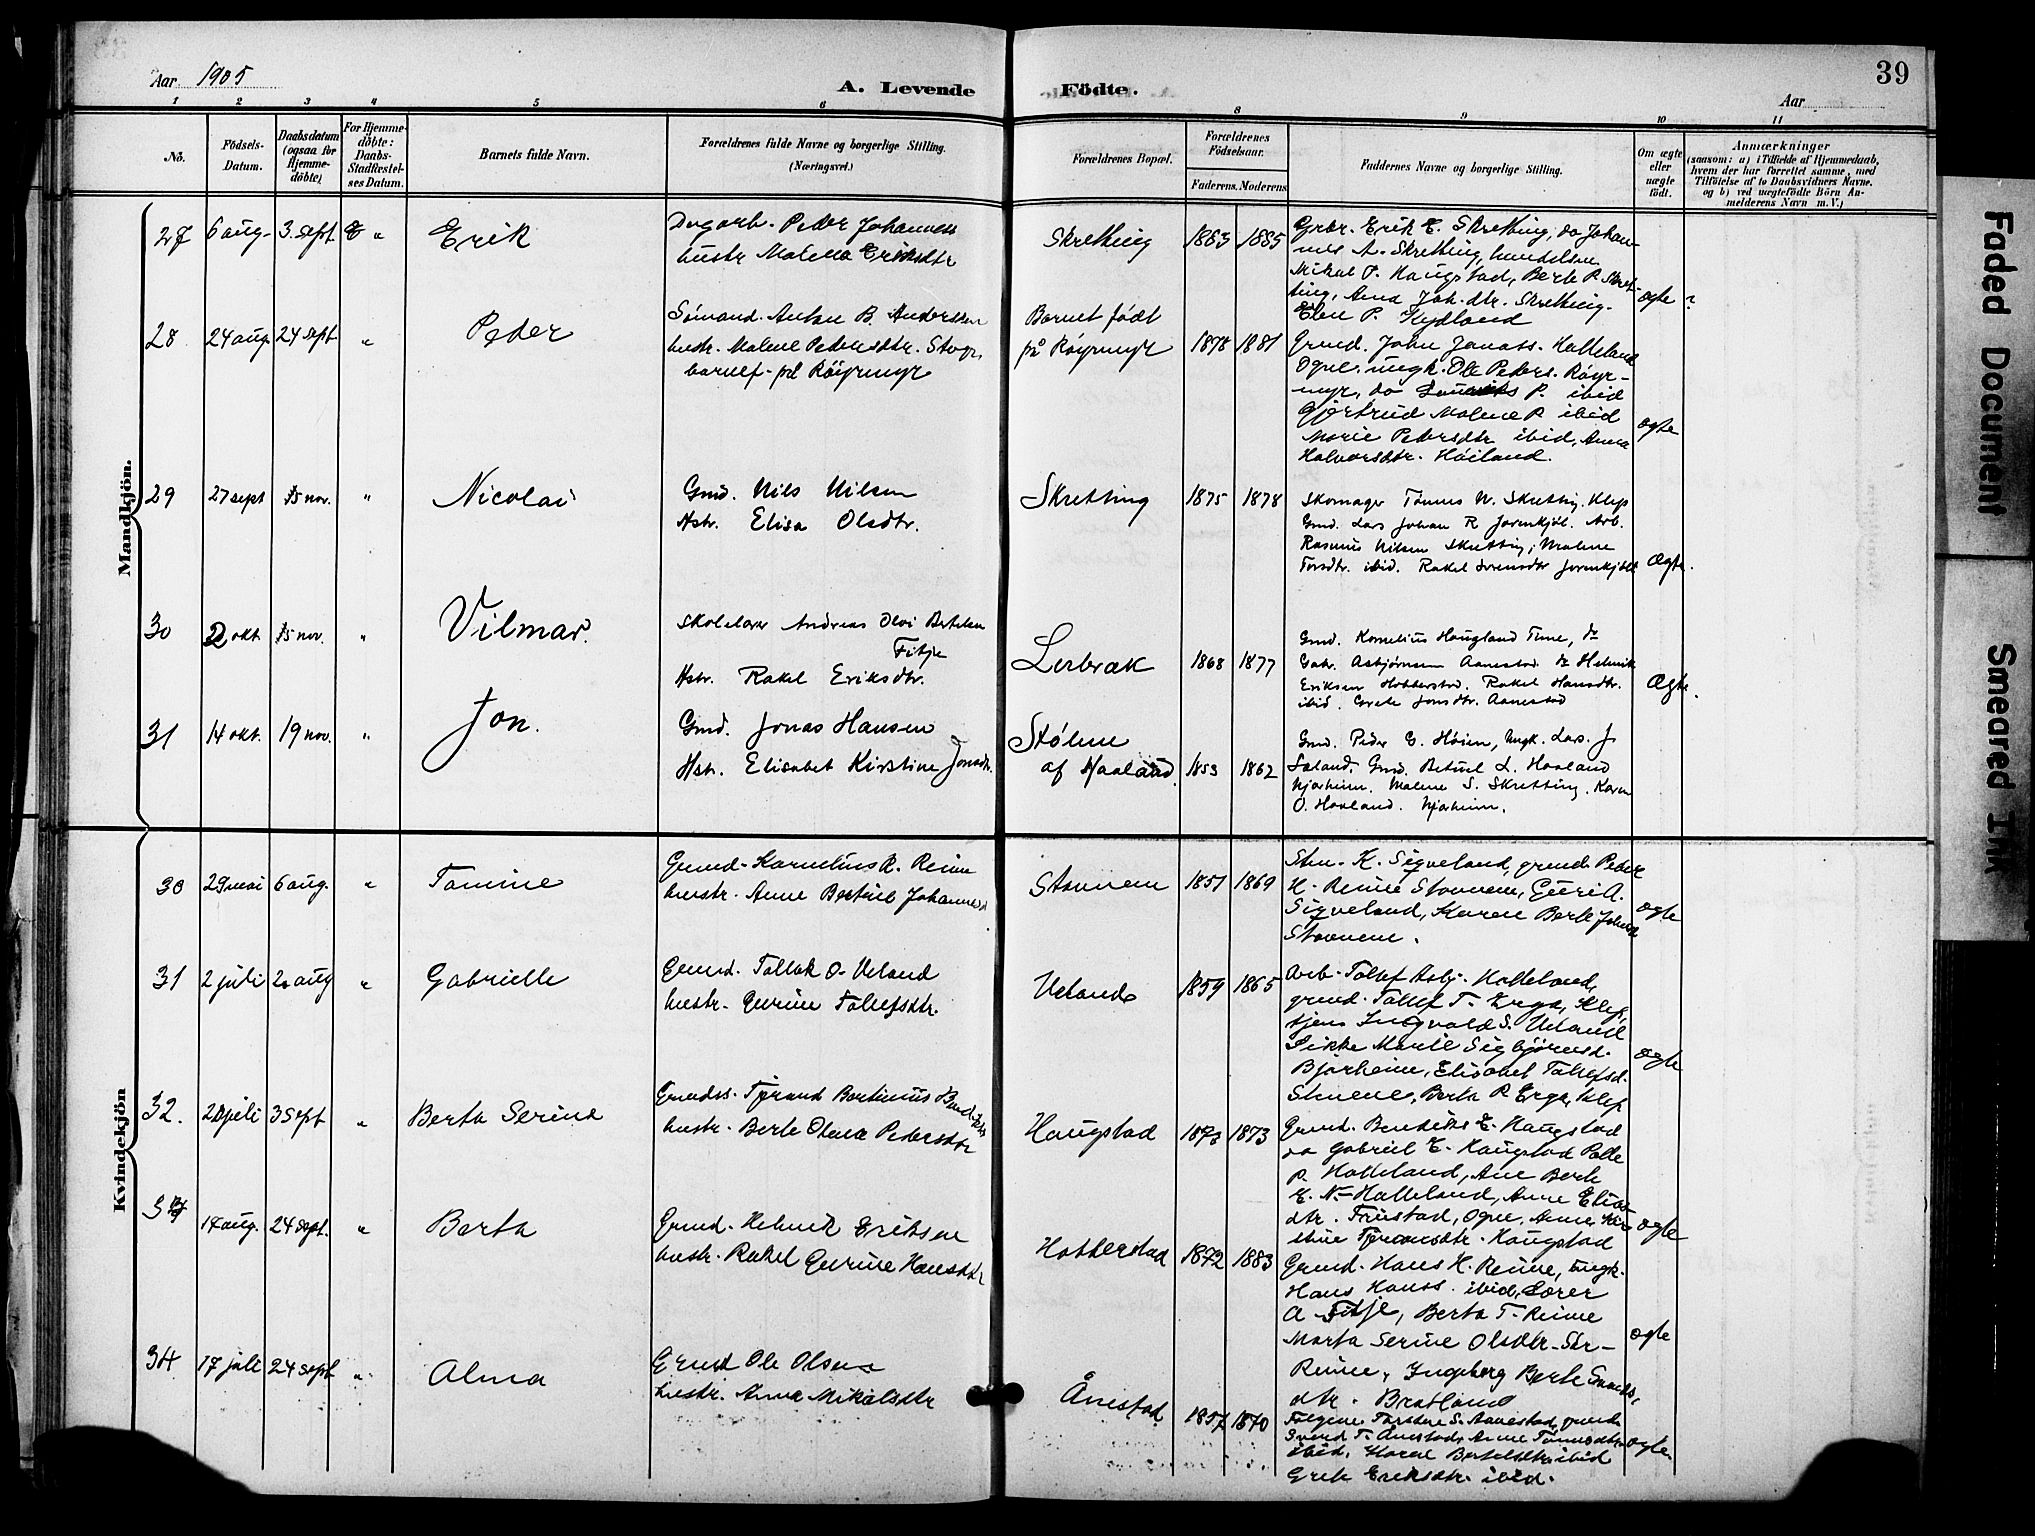 39
Aar 1905
A. Levende Fødte.
Aar
1 2 3 4 5 6 8 9 10 11
No.
Fødsels-
Datum.
Daabsdatum
(ogsaa for
Hjemme-
døbte)
For Hjemme-
døbte:
Daabs-
Stadfestel-
ses Datum.
Barnets fulde Navn.
Forældrenes fulde Navne og borgerlige Stilling.
(Næringsvei.)
Forældrenes Bopæl.
Forældrenes
Fødselsaar.
Faderens. Moderens
Faddernes Navne og borgerlige Stilling.
Om ægte
eller
uægte
født.
Anmærkninger
(saasom: a) i Tilfælde af Hjemmedaab,
hvem der har forrettet samme, med
Tilføielse af to Daabsvidners Navne.
og b) ved uægtefødte Børn An-
melderens Navn m. V.)
Mandkjön.
27 6 aug. 3. sept. "
Erik
Dagarb. Peder Johanness
hustr Malena Eriksdtr
Skretting
1863 1885
Grbr. Erik E. Skretting, do Johan-
nes A. Skretting, handelsm
Mikal T. Haugstad, Berte P. Skret-
ting, Anna Joh.dtr. Skretting.
Elen P. Kydland
ægte ?
28 24 aug 24 sept. "
Peder
Sømand. Anton B. Anderssen
hustr. Malene Pedersdtr. Stvgr.
barnef. på Røyrmyr
Barnet født
på Røyrmyr
1878 1881
Grmd. John Jonass. Halleland
Ogne, ungk. Ole Peders. Røyr-
myr, do P. ibid
Gjertrud Malene P. ibid
Marie Pedersdtr ibid, Anna
Halvorsdtr. Høiland.
ægte
29 27 sept 15 nov. "
Nicolai
Gmd. Nils Nilsen
Hstr. Elisa Olsdtr.
Skretting
1875 1878
Skomager Tønnes N. Skretting, Klep
Gmd. Lars Johan R Jorenkjøl. Arb.
Rasmus Nilsen Skretting; Malene
Torsdtr. ibid. Rakel Svensdtr Jorenkjøl
Ægte.
30 2 okt. 15 nov. "
Vilmar.
Skolelærer Andreas Olai Bertelsen
Fitje
Hstr. Rakel Eriksdtr.
Lerbræk
1868 1877
Gmd. Kornelius Haugland Time, do
Gabr. Asbjørnsen Aanestad. do Helmik
Eriksen Hobberstad. Rakel Hansdtr.
ibid. Grete Jonsdtr. Aanestad
Ægte.
31 14 okt. 19 nov. "
Jon.
Gmd. Jonas Hansen
Hstr. Elisabet Kirstine Jonsdtr.
Stølene
af Haaland.
1853 1862
Gmd. Peder E. Høien, Ungk. Lars. J
Saland, Gmd. Betuel L. Haaland
Njærheim. Malene S. Skretting. Karen
O. Haaland. Njærheim.
Kvindekjön
30 29 mai 6 aug. "
Tomine
Grmd. Kornelius R. Reime
hustr. Anne Bertine Johannesd
Stavnem
1851 1869
Sten. K. Sigveland, grmd. Peder
H. Reime Stavnem, Guri A.
Sigveland, Karen Berte Johsd
Stavnem.
ægte
31 2 juli 20 aug "
Gabrielle
Grmd. Tollak O. Ueland
hustr. Gurine Tollefsdtr.
Ueland
1859 1865
Arb. Tollef Asbj. Halleland,
grmd. Tollef T. Erga, Klep,
tjen. Ingvald S. Ueland
Pikke Marie Sigbjørnsd.
Bjårheim, Elisabet Tollefsd.
Stuene, Berta R. Erga, Klep
ægte
32. 20 juli 3 sept "
Berta Serine
Grmds. Tjerand Bertinius Bendikts
hustr. Berte Olena Pedersdtr
Haugstad
1873 1873
Grmd. Bendikts E. Haugstad
do Gabriel E. Haugstad Palle
P. Halleland, Ane Berte
E. N. Halleland, Anne Elias-
dtr. Fuestad, Ogne. Anne Kir-
stine Tjerandsdtr. Haugstad
ægte
33 14 aug. 24 sept. "
Berta
Grmd. Helmik Eriksen
hustr. Rakel Gurine Hansdtr
Hobberstad
1872 1883
Grmd. Hans H. Reime, ungk.
Hans Hanss. ibid, Lærer
A. Fitje, Berta T. Reime
Marta Serine Olsdtr. Str-
Reime, Ingeborg Berte
dtr. Bratland
ægte
34 17 juli 24 sept "
Alma
Grmd Ole Olsen
hustr. Anna Mikalsdtr
Ånestad
1857 1870
Følgene Torsten S. Aanestad, grmd.
Svend T. Ånestad, Anne Tønnesdtr
ibid, Karen Bertelsdtr ibid
Grete Eriksdtr. ibid.
ægte
Faded Document
Smeared Ink